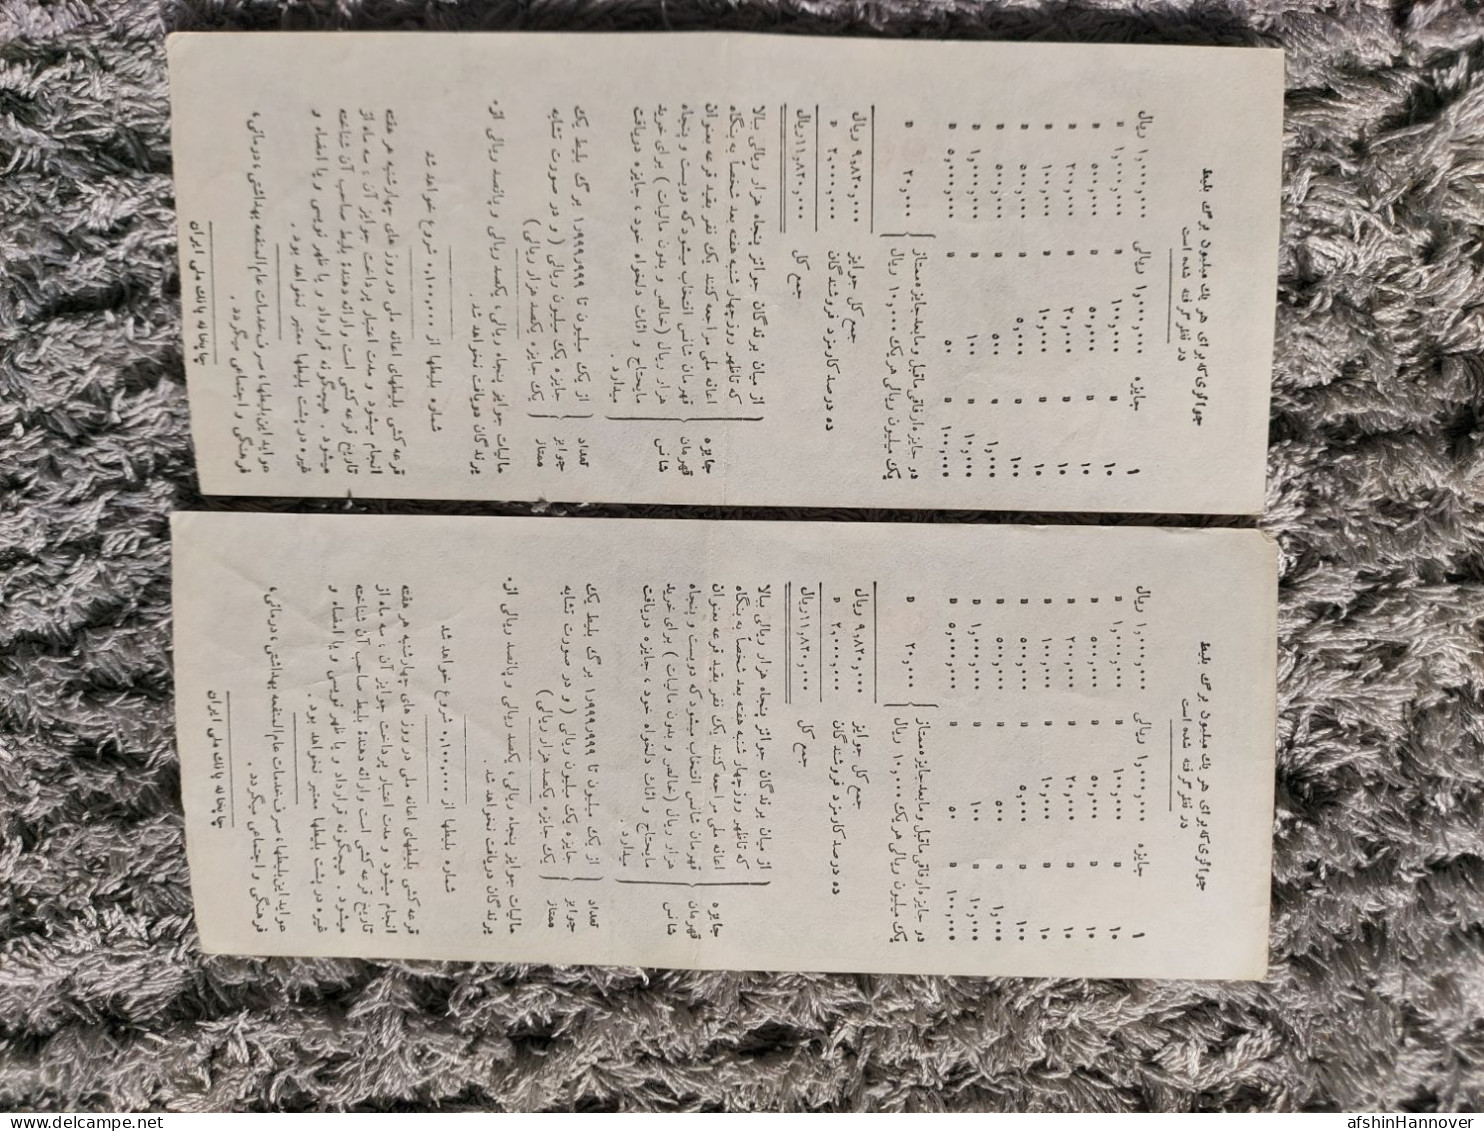 جوائزی که برای هر یک میلیون برگ بلیط
در نظر گرفته شده است
۱ جایزه ۱٫۰۰۰٫۰۰۰ ریالی ۱٫۰۰۰٫۰۰۰ ریال
۱۰ » ۱۰۰٫۰۰۰ » ۱٫۰۰۰٫۰۰۰ »
۱۰ » ۵۰٫۰۰۰ » ۵۰۰٫۰۰۰ »
۱۰ » ۲۰٫۰۰۰ » ۲۰۰٫۰۰۰ »
۱۰ » ۱۰٫۰۰۰ » ۱۰۰٫۰۰۰ »
۱۰۰ » ۵٫۰۰۰ » ۵۰۰٫۰۰۰ »
۱٫۰۰۰ » ۵۰۰ » ۵۰۰٫۰۰۰ »
۱۰٫۰۰۰ » ۱۰۰ » ۱٫۰۰۰٫۰۰۰ »
۱۰۰٫۰۰۰ » ۵۰ » ۵٫۰۰۰٫۰۰۰ »
دو جایزه ارفاقی ماقبل و مابعد جایزه ممتاز
یک میلیون ریالی هر یک ۱۰٫۰۰۰ ریال } ۲۰٫۰۰۰ »
جمع کل جوایز ۹٫۸۲۰٫۰۰۰ ریال
ده درصد کارمزد فروشندگان ۲٫۰۰۰٫۰۰۰ »
جمع کل ۱۱٫۸۲۰٫۰۰۰ ریال
جایزه قهرمان شانس
از میان برندگان جوائز پنجاه هزار ریالی ببالا
که تا ظهر روز چهارشنبه هفته بعد شخصاً به بنگاه
اعانه ملی مراجعه کنند یک نفر بقید قرعه بعنوان
قهرمان شانس انتخاب میشود که دویست و پنجاه
هزار ریال (خالص و بدون مالیات) برای خرید
مایحتاج و اثاث دلخواه خود، جایزه دریافت
میدارد.
تعداد جوایز ممتاز
از یک میلیون تا ۱٫۹۹۹٫۹۹۹ برگ بلیط یک
جایزه یک میلیون ریالی (و در صورت تشابه
یک جایزه یکصد هزار ریالی)
مالیات جوایز پنجاه ریالی، یکصد ریالی و پانصد ریالی از
برندگان دریافت نخواهد شد.
شماره بلیطها از ۱۰۰٫۰۰۰ شروع خواهد شد
قرعه کشی بلیطهای اعانه ملی در روزهای چهارشنبه هر هفته
انجام میشود و مدت اعتبار پرداخت جوایز آن، سه ماه از
تاریخ قرعه کشی است و ارائه دهندهٔ بلیط صاحب آن شناخته
میشود. هیچگونه قرارداد و یا ظهر نویسی و یا امضاء و
غیره در پشت بلیطها معتبر نخواهد بود.
عواید این بلیطها، صرف خدمات عام المنفعه بهداشتی، درمانی،
فرهنگی و اجتماعی میگردد.
چاپخانه بانک ملی ایران
جوائزی که برای هر یک میلیون برگ بلیط
در نظر گرفته شده است
۱ جایزه ۱٫۰۰۰٫۰۰۰ ریالی ۱٫۰۰۰٫۰۰۰ ریال
۱۰ » ۱۰۰٫۰۰۰ » ۱٫۰۰۰٫۰۰۰ »
۱۰ » ۵۰٫۰۰۰ » ۵۰۰٫۰۰۰ »
۱۰ » ۲۰٫۰۰۰ » ۲۰۰٫۰۰۰ »
۱۰ » ۱۰٫۰۰۰ » ۱۰۰٫۰۰۰ »
۱۰۰ » ۵٫۰۰۰ » ۵۰۰٫۰۰۰ »
۱٫۰۰۰ » ۵۰۰ » ۵۰۰٫۰۰۰ »
۱۰٫۰۰۰ » ۱۰۰ » ۱٫۰۰۰٫۰۰۰ »
۱۰۰٫۰۰۰ » ۵۰ » ۵٫۰۰۰٫۰۰۰ »
دو جایزه ارفاقی ماقبل و مابعد جایزه ممتاز
یک میلیون ریالی هر یک ۱۰٫۰۰۰ ریال } ۲۰٫۰۰۰ »
جمع کل جوایز ۹٫۸۲۰٫۰۰۰ ریال
ده درصد کارمزد فروشندگان ۲٫۰۰۰٫۰۰۰ »
جمع کل ۱۱٫۸۲۰٫۰۰۰ ریال
جایزه قهرمان شانس
از میان برندگان جوائز پنجاه هزار ریالی ببالا
که تا ظهر روز چهارشنبه هفته بعد شخصاً به بنگاه
اعانه ملی مراجعه کنند یک نفر بقید قرعه بعنوان
قهرمان شانس انتخاب میشود که دویست و پنجاه
هزار ریال (خالص و بدون مالیات) برای خرید
مایحتاج و اثاث دلخواه خود، جایزه دریافت
میدارد.
تعداد جوایز ممتاز
از یک میلیون تا ۱٫۹۹۹٫۹۹۹ برگ بلیط یک
جایزه یک میلیون ریالی (و در صورت تشابه
یک جایزه یکصد هزار ریالی)
مالیات جوایز پنجاه ریالی، یکصد ریالی و پانصد ریالی از
برندگان دریافت نخواهد شد.
شماره بلیطها از ۱۰۰٫۰۰۰ شروع خواهد شد
قرعه کشی بلیطهای اعانه ملی در روزهای چهارشنبه هر هفته
انجام میشود و مدت اعتبار پرداخت جوایز آن، سه ماه از
تاریخ قرعه کشی است و ارائه دهندهٔ بلیط صاحب آن شناخته
میشود. هیچگونه قرارداد و یا ظهر نویسی و یا امضاء و
غیره در پشت بلیطها معتبر نخواهد بود.
عواید این بلیطها، صرف خدمات عام المنفعه بهداشتی، درمانی،
فرهنگی و اجتماعی میگردد.
چاپخانه بانک ملی ایران
delcampe.net
afshinHannover